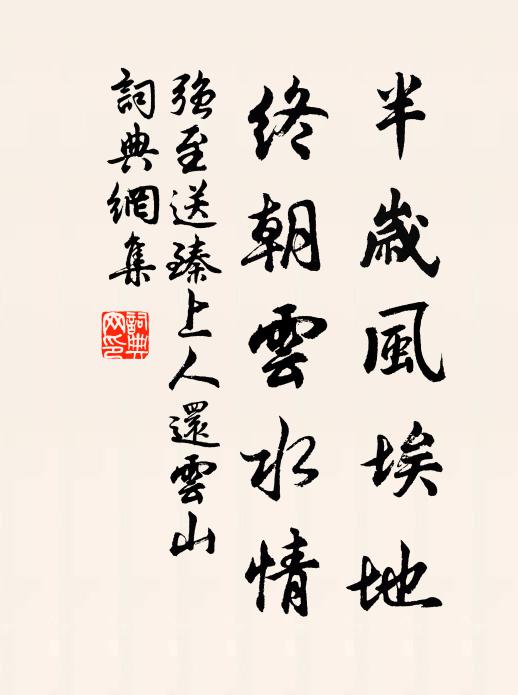 半歲風埃地
終朝雲水情
強至送臻上人還雲山
詞典網集
詞典網印